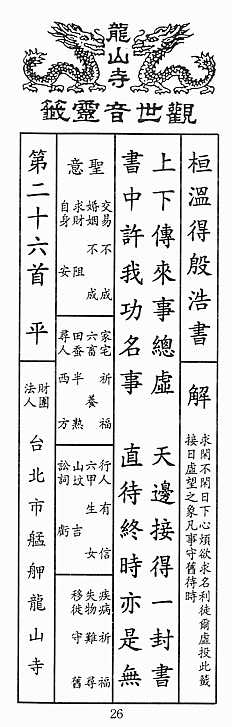 龍山寺
觀世音靈籤
桓溫得殷浩書
解
求閑不閑日下心煩欲求名利徒爾虛投此籤
接日虛望之象凡事守舊待時
上下傳來事總虛 天邊接得一封書
書中許我功名事 直待終時亦是無
聖意
交易 不成
婚姻 不成
求財 阻
自身 安
家宅 祈福
六畜 養
田蚕 半熟
尋人 西方
行人 有信
六甲 生女
山墳 吉
訟詞 虧
疾病 祈福
失物 難尋
移徙 守舊
第二十六首 平
財團法人 台北市艋舺龍山寺
26